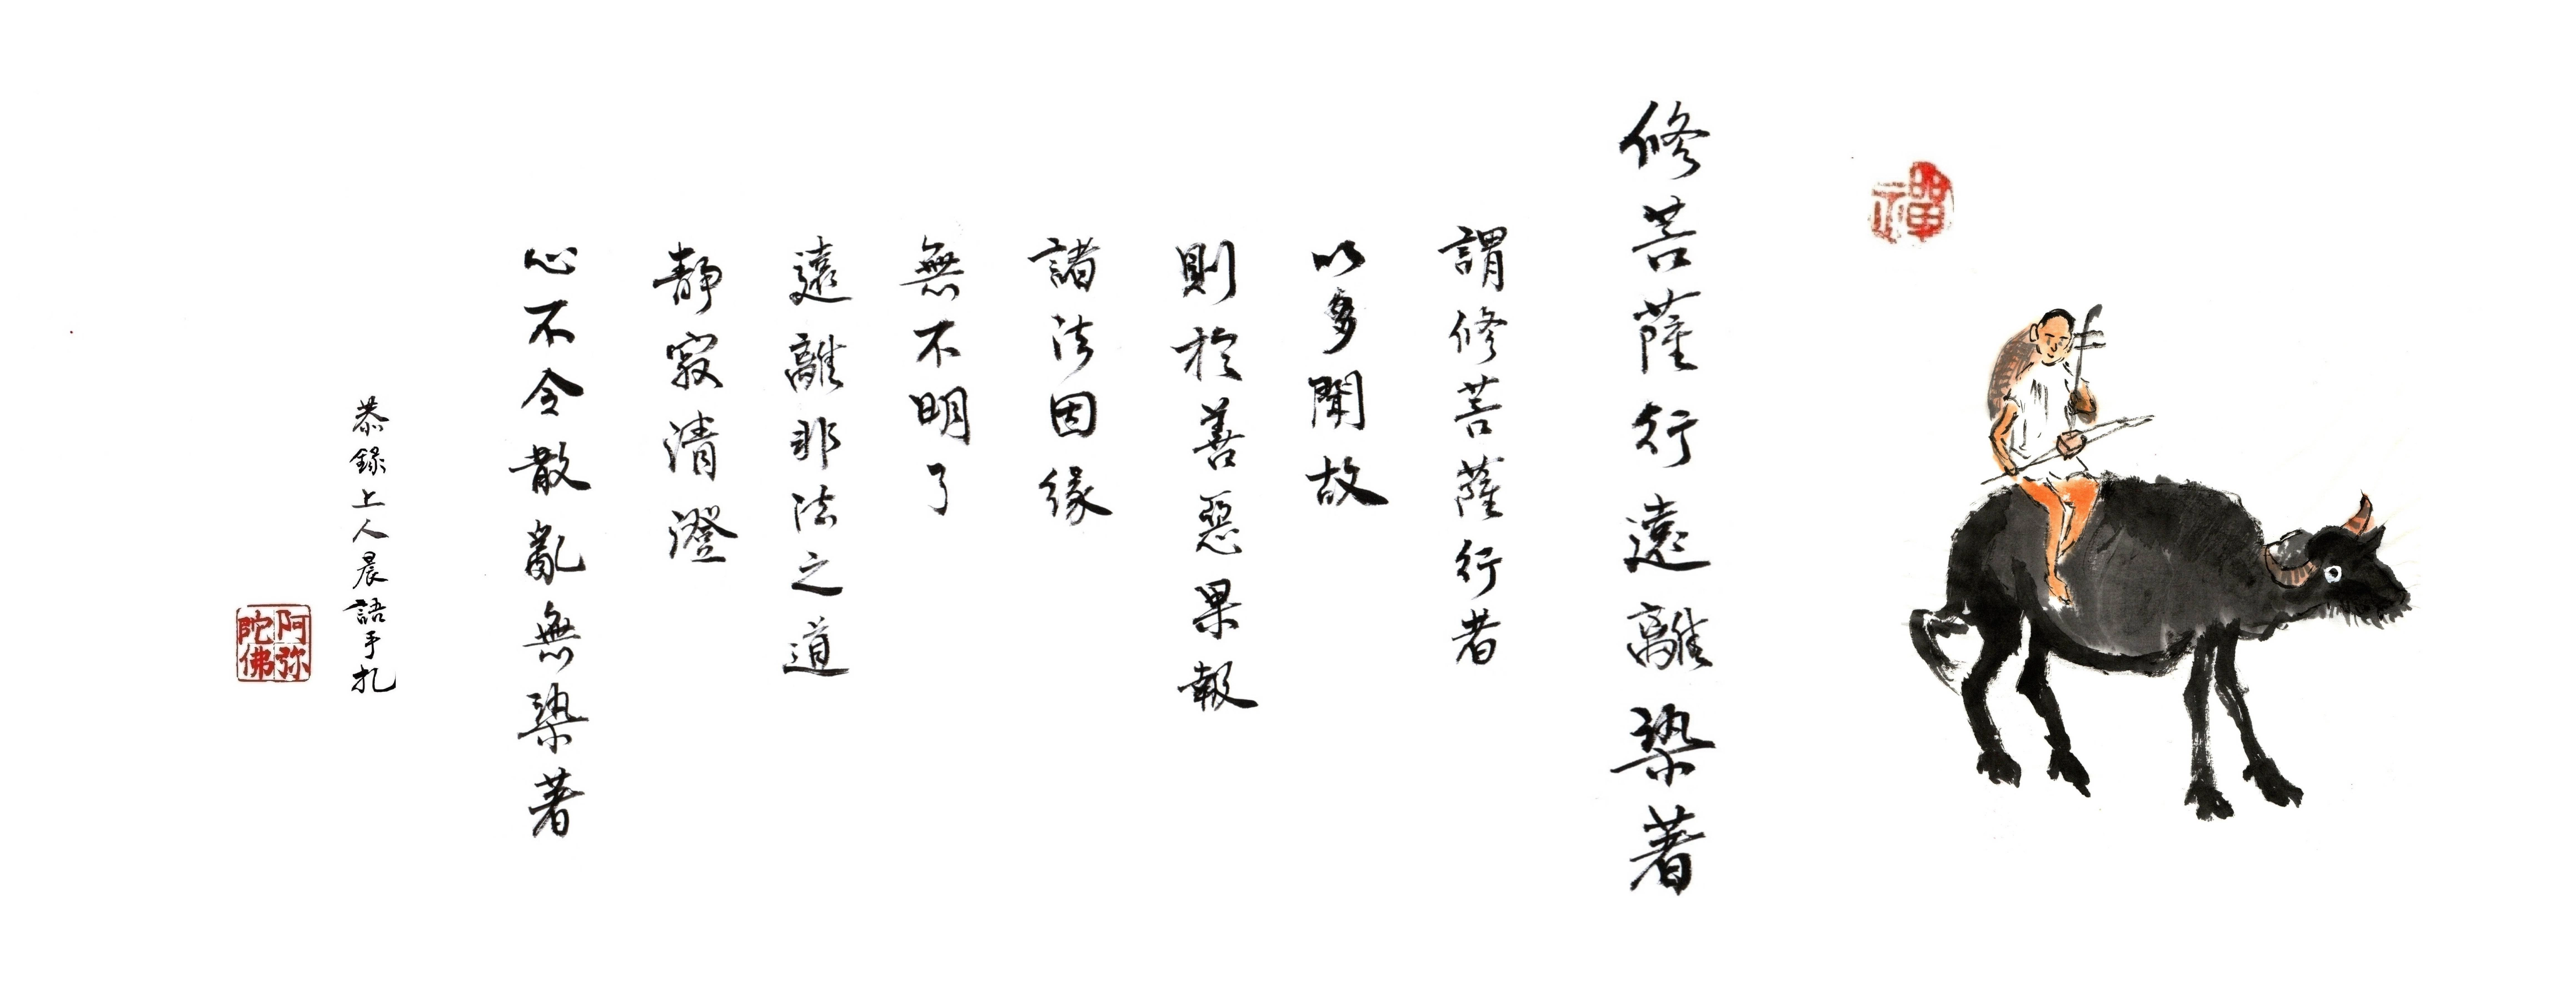 禪
修菩薩行遠離染著
謂修菩薩行者
以多聞故
則於善惡果報
諸法因緣
無不明了
遠離非法之道
靜寂清澄
心不令散亂無染著
恭錄上人晨語手札
阿弥陀佛